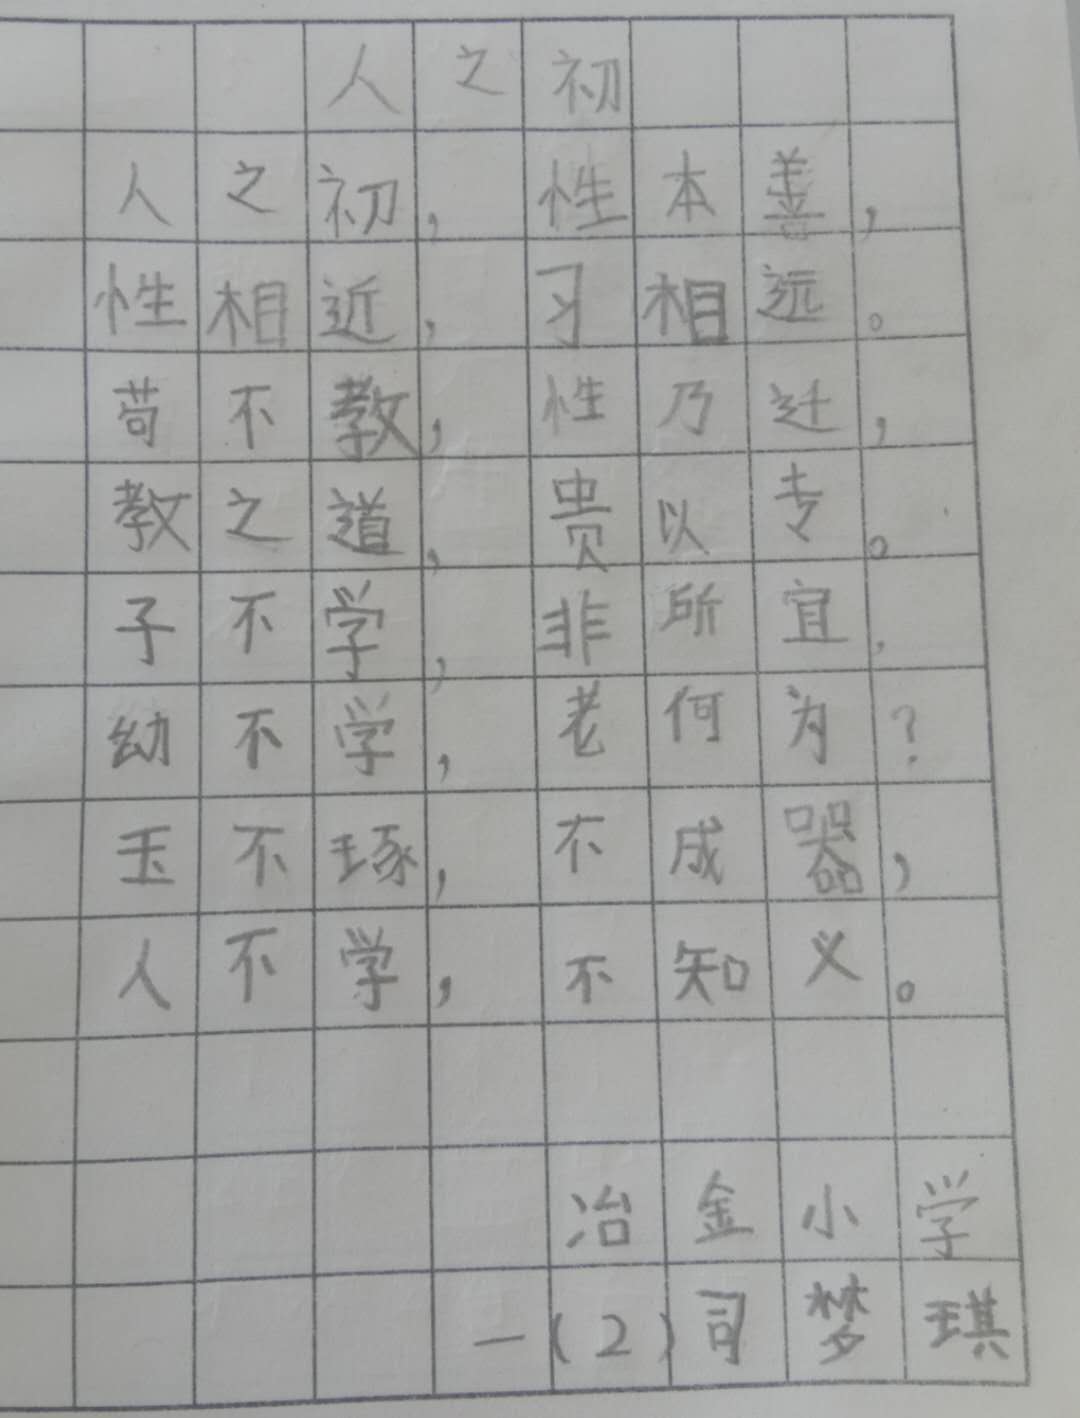 人之初
人之初，性本善，
性相近，习相远。
苟不教，性乃迁，
教之道，贵以专。
子不学，非所宜，
幼不学，老何为？
玉不琢，不成器，
人不学，不知义。
冶金小学
一（2）司梦琪